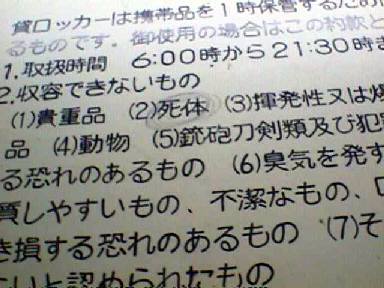 貸ロッカーは携帯品を1時保管するため
るものです。御使用の場合はこの約款と
1.取扱時間 6:00時から21:30時ま
2.収容できないもの
(1)貴重品 (2)死体 (3)揮発性又は爆
品 (4)動物 (5)銃砲刀剣類及び犯
る恐れのあるもの (6)臭気を発す
質しやすいもの、不潔なもの、
き損する恐れのあるもの (7)そ
ないと認められたもの